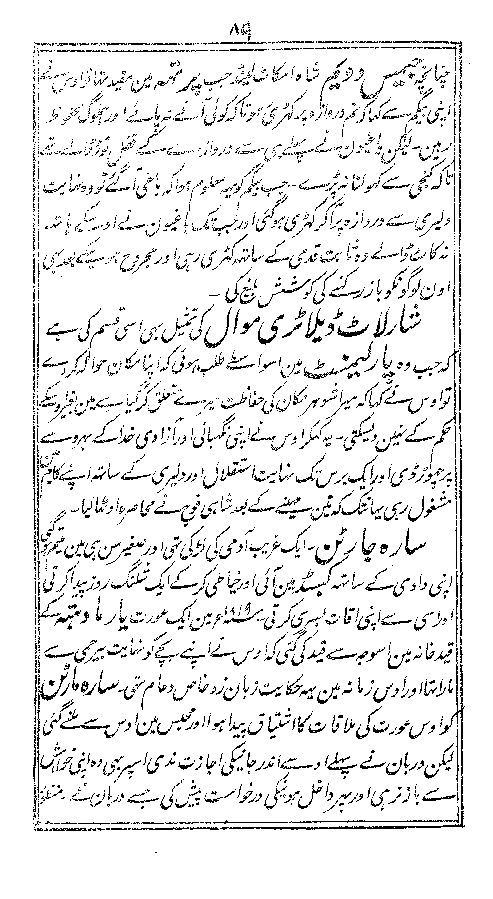 ۸۹
چنانچہ جیمس دویم شاہ اسکاٹلینڈ جب پرتھہ مین مقید تھا تو اوس نے
اپنی بیگم سے کہا کہ تم دروازہ پر کھڑی ہو تاکہ کوئی آنے نہ پائے اور ہملوگ محفوظ
رہین ۔ لیکن باغیون نے پہلے ہی سے دروازے کے قفل توڑ ڈالے تھے
تاکہ کنجی سے کھولنا نہ پڑے ۔ جب بیگم کو یہ معلوم ہوا کہ باغی آگئے تو وہ نہایت
دلیری سے دروازہ پر آکر کھڑی ہوگئی اور جب تک باغیون نے اوسکے ہاتھہ
نہ کاٹ ڈالے وہ ثابت قدمی کے ساتھہ کھڑی رہی اور مجروح ہونیکے بعد بھی
اون لوگونکو باز رکھنے کی کوشش بلیغ کی ۔
شارلاٹ ڈیلاٹری موال کی تمثیل بھی اسی قسم کی ہے
کہ جب وہ پارلیمنٹ مین اسواسطے طلب ہوئی کہ اپنا مکان حوالہ کردے
تو اوس نے کہا کہ میرا شوہر مکان کی حفاظت میرے متعلق کر گیا ہے مین بغیر اوسکے
حکم کے نہین دیسکتی ۔ یہ کہکر اوس نے اپنی نگہبانی اور آزادی خدا کے بھروسے
پر چھوڑ دی اور ایک برس تک نہایت استقلال اور دلیری کے ساتھہ اپنے کام مین
مشغول رہی یہانتک کہ تین مہینے کے بعد شاہی فوج نے محاصرہ اوٹھا لیا ۔
سارہ مارٹن ۔ ایک غریب آدمی کی لڑکی تھی اور صغیر سن ہی مین یتیم ہوگئی
اپنی دادی کے ساتھہ کیسٹر مین آئی اور خیاطی کرکے ایک شلنگ روز پیدا کرتی
اور اسی سے اپنی اوقات بسری کرتی ۔ ۱۸۱۹ء مین ایک عورت یارماوتھہ کے
قید خانہ مین اسوجہ سے قید کی گئی کہ اوس نے اپنے بچے کو نہایت بیرحمی سے
مارا تھا اور اوس زمانہ مین یہہ حکایت زبان زد خاص و عام تھی ۔ سارہ مارٹن
کو اوس عورت کی ملاقات کا اشتیاق پیدا ہوا اور محبس مین اوس سے ملنے گئی
لیکن دربان نے پہلے اوسے اندر جانیکی اجازت ندی اسپر بھی وہ اپنی خواہش
سے باز نرہی اور پھر داخل ہونیکی درخواست پیش کی جسے دربان نے منظور